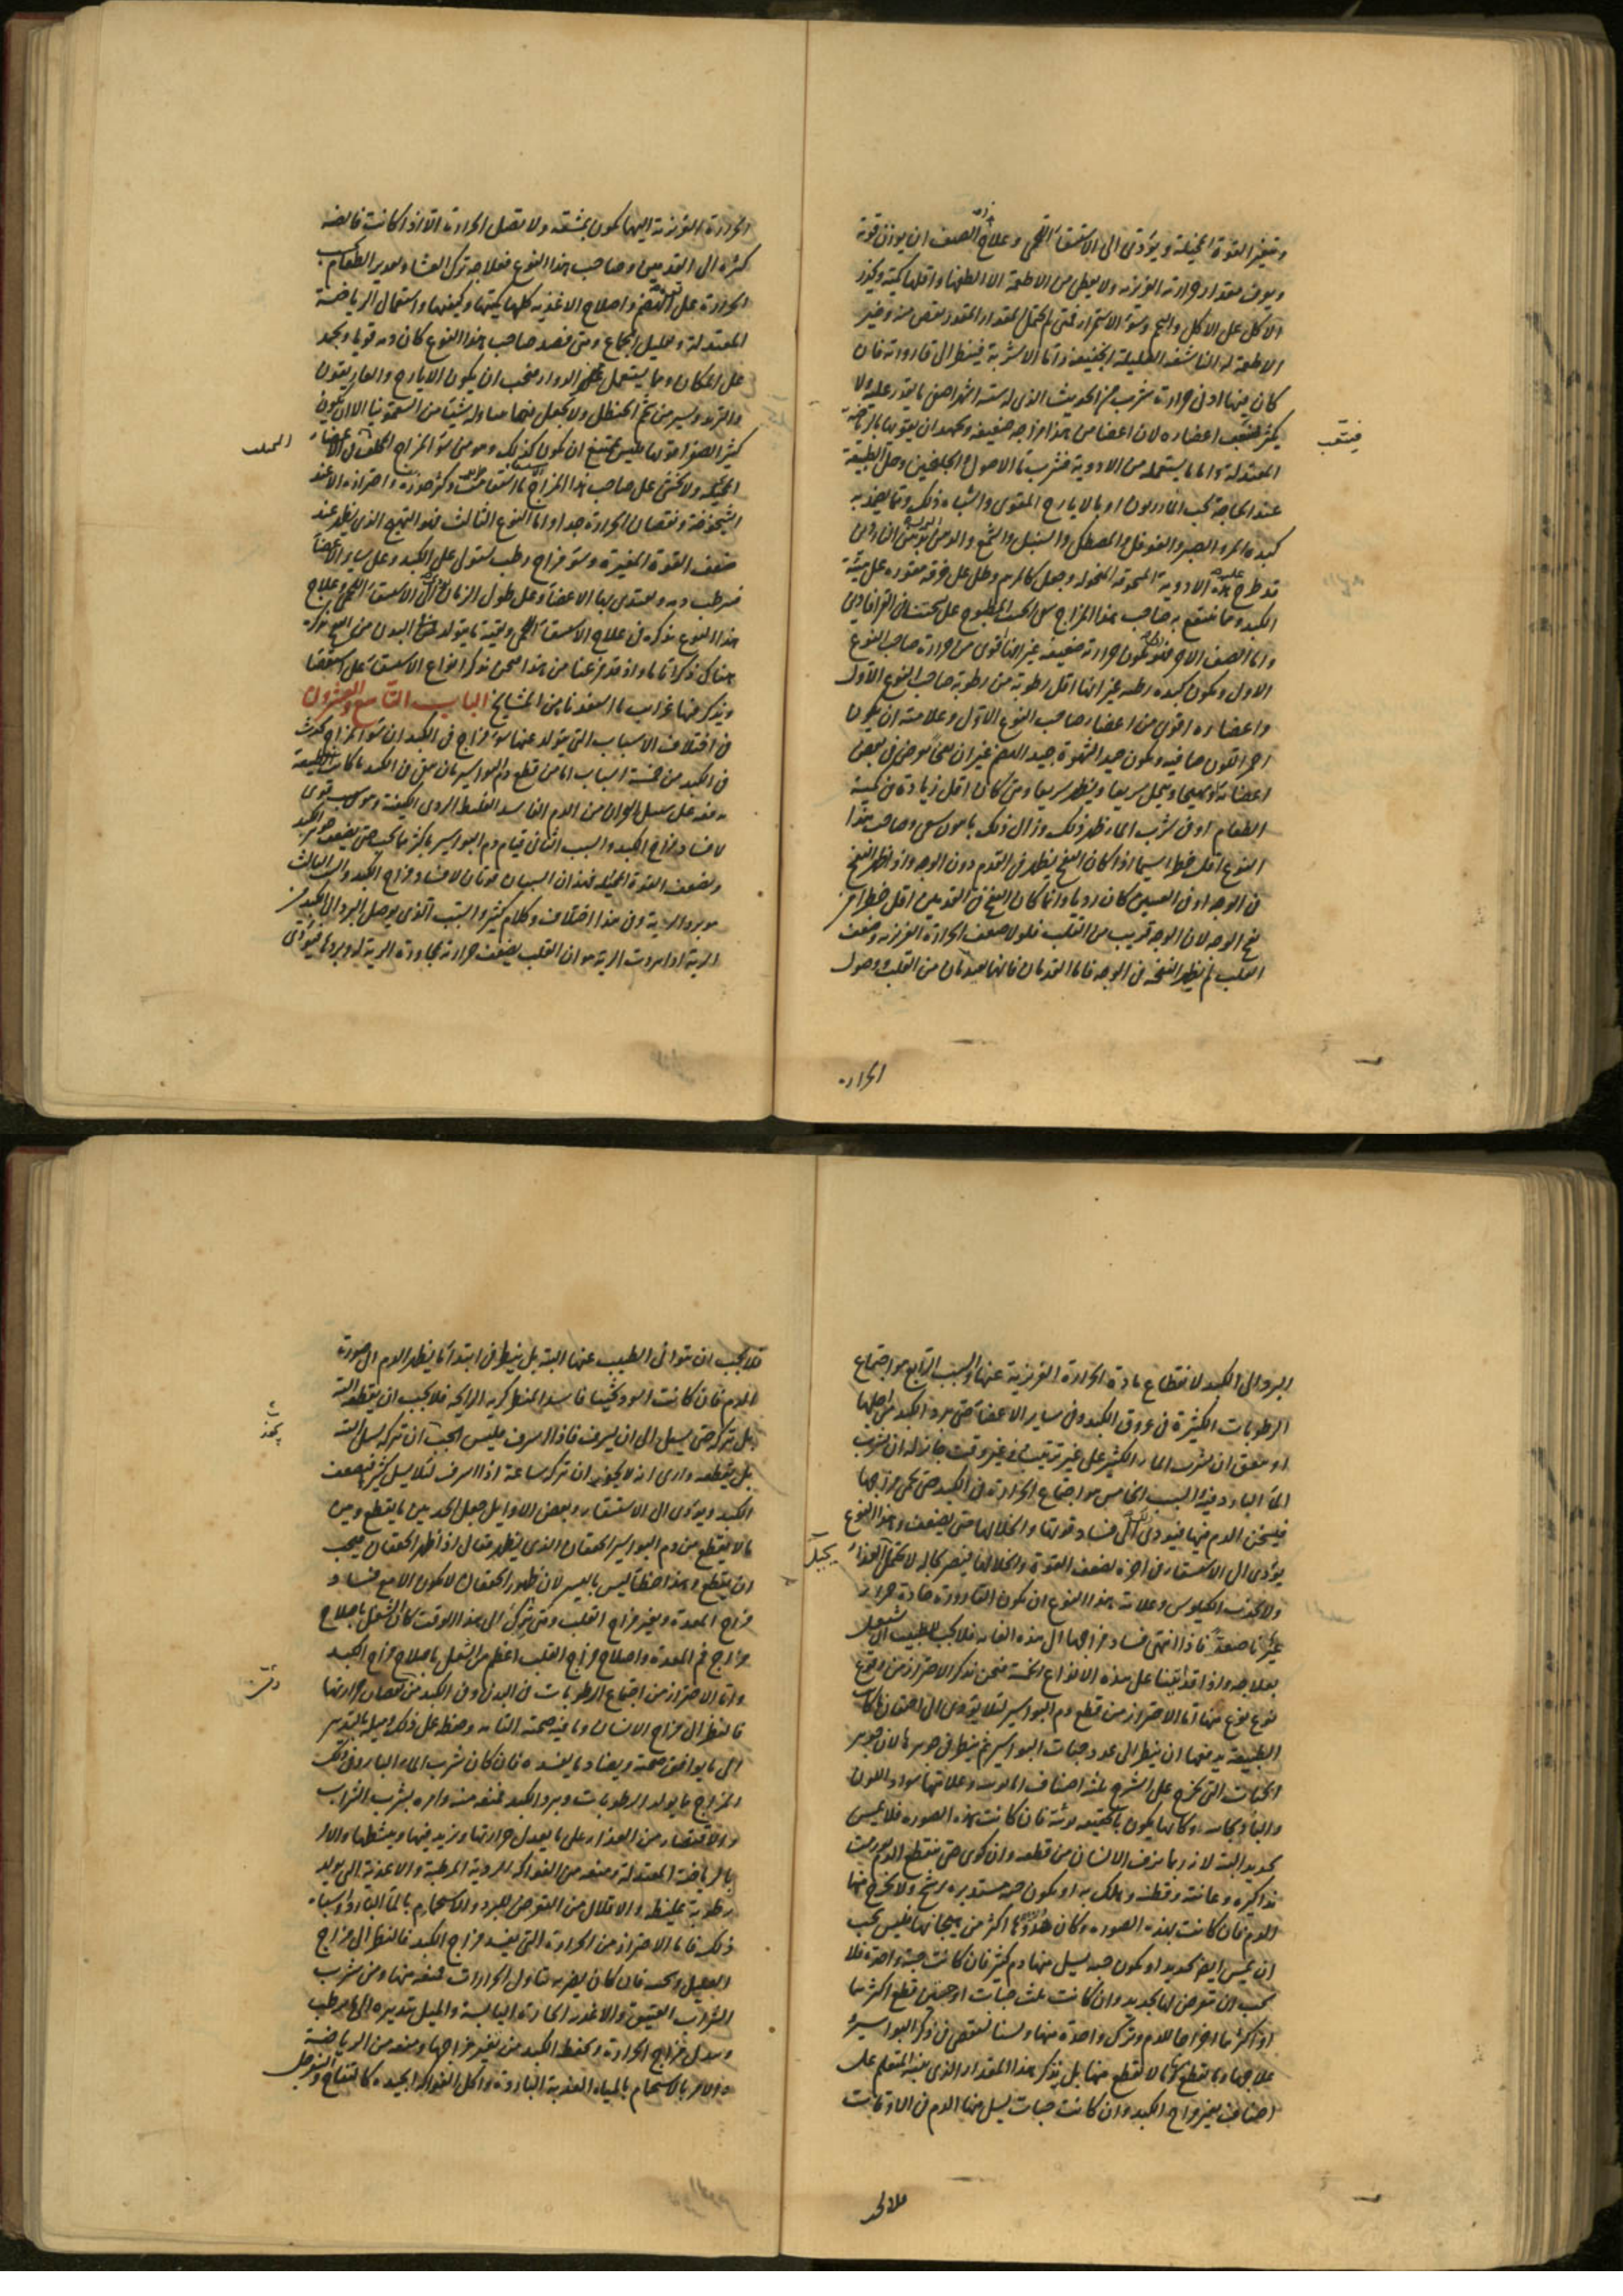 وتتغير القوة المحيلة ويؤدي الى الاستسقاء اللحمي وعلاج هذا الصنف ان يوزن قوته
ويعرف مقدار حرارته الغريزية ولا يعطى من الاطعمة الا الطفها واقلها كمية ويحذر
الاكل على الاكل والتخم وسوء الاستمراء فمتى لم يحتمل المقدار المقدر نقص منه وخير
الاطعمة له الناشفة القليلة الخفيفة واما الاشربة فينظر الى قارورته فان
كان فيها ادنى حرارة شرب من الحديث الذي له ستة اشهر اصفى ما يقدر عليه ولا
يكثر فيتعب اعضاءه لان اعضا من هذا مزاجه ضعيفة ويجتهد ان يقويها بالرياضة
فيتعب
المعتدلة واما ما يستعمله من الادوية فشرب ماء الاصول والجلنجبين وحل الطبيعة
عند الحاجة بحب المازريون او بالايارج المقوى واشباه ذلك ومما يضمد به
كبده المر والصبر والفوفل والمصطكى والسنبل والشمع والدهن
قد طرح عليه هذه الادوية المسحوقة المنخولة وجعل كالمرهم وطلي على خرقة مقورة على هيئة
الكبد ومما ينتفع به صاحب هذا المزاج
واما الصنف الاخر فتكون حرارته ضعيفة غير انها اقوى من حرارة صاحب النوع
الاول ويكون كبده رطبة غير انها اقل رطوبة من رطوبة صاحب النوع الاول
واعضاءه اقوى من اعضاء صاحب النوع الاول وعلامته ان يكون
احمر اللون صافيه ويكون جيد الشهوة جيد الهضم غير ان
اعضائه تهيجا ويحل سريعا ويظهر سريعا ومتى كان اقل زيادة في كمية
الطعام او في شرب الماء ظهر ذلك وزال ذلك باهون سعى وصاحب هذا
النوع اقل خطرا سيما اذا كان النفخ يظهر في القدم دون الوجه واذا ظهر النفخ
في الوجه او في العينين كان رديا وانما كان النفخ في القدمين اقل خطرا من
نفخ الوجه لان الوجه قريب من القلب فلولا ضعف الحرارة الغريزية وضعف
القلب لم يظهر النفخة في الوجه فاما القدمان فانهما بعيدتان من القلب ووصول
الحرارة
الحرارة الغريزية اليهما يكون بمشقة ولا تصل الحرارة الا اذا كانت فايضة
كثيرة الى القدمين وصاحب هذا النوع فعلاجه ترك العشاء وتدبير الطعام
الحرارة على الهضم واصلاح الاغذية كلها بكميتها وكيفيتها واستعمال الرياضة
المعتدلة وتقليل الجماع ومتى فصد صاحب هذا النوع كان دمه قويا ويجمد
على المكان ومما يستعمل من الدواء فيجب ان يكون الايارج والغاريقون
والتربد ويسير من شحم الحنظل ولا يجعل فيما يتناوله شيئا من السقمونيا الا ان يكون
كثير الصفراء وليس يمتنع ان يكون كذلك وهو من سوء المزاج المختلف في الاعضاء
المختلف
المحيلة ولا يخشى على صاحب هذا المزاج الاستسقاء متى وكثر حذره واحترازه الا عند
الشيخوخة ونقصان الحرارة جدا واما النوع الثالث فهو التهيج الذي يظهر عند
ضعف القوة المغيرة وسوء مزاج رطب يستولي على الكبد وعلى ساير الاعضاء
فيرطب دمه ويغتذي بها الاعضاء وعلى طول الزمان يؤدي الى الاستسقاء اللحمي وعلاج
هذا النوع نذكره في علاج الاستسقاء اللحمي وبقية ما يتولد في البدن من التهيج نذكره
هناك ذكرا تاما واذ قد فرغنا من هذا فنحن نذكر انواع الاستسقاء على استقصاء
ونذكر فيها غرايب ما استفدناه من المشايخ الباب التاسع والعشرون
في اختلاف الاسباب التي يتولد عنها سوء مزاج في الكبد ان سوء المزاج يحدث
في الكبد من خمسة اسباب اما من قطع دم البواسير بان يبقى في الكبد ما كانت الطبيعة
تدفعه على سبيل البحران من الدم الفاسد الغليظ الردي الكيفية وهو سبب قوي
لافساد مزاج الكبد والسبب الثاني قيام دم البواسير باكثر ما يجب حتى يضعف جوهر الكبد
ويضعف القوة المحيلة فهذان السببان قويان لافساد مزاج الكبد والسبب الثالث
هو برد الرية وفي هذا اختلاف وكلام كثير والسبب الذي يوصل البرد الى الكبد من
الرية اذا بردت الرية هو ان القلب يضعف حرارته بمجاورة الرية له وبردها فيؤدي
البرد الى الكبد لانقطاع مادة الحرارة الغريزية عنها والسبب الرابع هو اجتماع
الرطوبات الكثيرة في عروق الكبد وفي ساير الاعضاء حتى يبرد الكبد من اجلها
او يتفق ان يشرب الماء الكثير على غير ترتيب وفي غير وقت جايز له ان يشرب
الماء البارد فيه والسبب الخامس هو اجتماع الحرارة في الكبد حتى يحمى مزاجها
فيسخن الدم فيها فيؤدي ذلك الى فساد قوتها وانحلالها حتى يضعف وهذا النوع
يؤدي الى الاستسقاء في اخره لضعف القوة وانحلالها فيصير بحاله لا تحيل الغذاء
تحيل
ولا تجذب الكيلوس وعلامة هذا النوع ان تكون القارورة حادة حمراء
غير ناصعة فاذا انتهى فساد مزاجها الى هذه الغاية فلا يجب للطبيب ان يشتغل
بعلاجه واذ قد اتينا على هذه الانواع الخمسة فنحن نذكر الاحتراز من وقوع
نوع نوع منها اما الاحتراز من قطع دم البواسير لئلا يؤدي الى احتقان ما كانت
الطبيعة يدفعها ان ينظر الى عدد حبات البواسير ثم ينظر في جوهرها لان جوهر
الحبات التي تخرج على الشرج ثلثة اصناف التوث وعلامتها سواد اللون
والباذنجانية وكانها يكون بالحقيقة توثة فان كانت بهذه الصورة فلا يمس
بحديد البتة لانه ربما نزف الانسان من قطعه وان كوى حتى ينقطع الدم تورمت
مذاكيره وعانته وقطنه ويهلك به او يكون حبه مستديره يرشح ولا يخرج منها
الدم فان كانت بهذه الصورة وكان هدوءها اكثر من هيجانها فليس يجب
ان يمس ايضا بحديد او يكون حبه يسيل منها دم كثير فان كانت حبة واحدة فلا
يجب ان يتعرض لها بحديد وان كانت ثلث حبات او حبتين قطع اكثرها
اذ اكثرها اخراجا للدم وترك واحدة منها ولسنا نستقصي في ذكر البواسير
علاجها وما يقطع وما لا يقطع منها بل نذكر هذا المقدار الذي ينبه المتعلم على
اصناف تغير مزاج الكبد وان كانت حبات يسيل منها الدم في الاوقات
فلا يجب
فلا يجب ان يتوانى الطبيب عنها البتة بل ينظر في ابتداء ما يظهر الدم الى صورة
الدم فان كانت اسود ثخينا فاسد المنظر كريه الرايحة فلا يجب ان يقطعه البتة
بل يتركه حتى يسيل الى ان يسرف فاذا اسرف فليس يجب ان يتركه يسيل البتة
يجوز
بل يقطعه وارى انه لا يجوز ان يتركه ساعة اذا اسرف لئلا يسيل كثيرا فيضعف
الكبد ويؤدي الى الاستسقاء وبعض الاوايل جعل الحد بين ما يقطع وبين
ما لا يقطع من دم البواسير الخفقان الذي يظهر فقال اذا ظهر الخفقان فيجب
ان يقطع وهذا خطأ ليس باليسير لان ظهور الخفقان لا يكون الا مع فساد
مزاج المعدة وتغير مزاج القلب ومتى ترك الى هذا الوقت كان الشغل باصلاح
مزاج فم المعدة واصلاح مزاج القلب اعظم من الشغل باصلاح مزاج الكبد
واما الاحتراز من اجتماع الرطوبات في البدن وفي الكبد من نقصان حرارتها
فالنظر الى مزاج الانسان وما فيه صحته التامة وحفظه على ذلك وميله بالتدبير
الى ما يوافق صحته ويضاد ما يفسده فان كان شرب الماء البارد في ذلك
المزاج مما يولد الرطوبات ويبرد الكبد فمنعه منه وامره بشرب الشراب
والاقتصار من الغذاء على ما يعدل حرارتها ويزيد فيها وينشطها والامر
بالرياضة المعتدلة ومنعه من الفواكه الردية المرطبة والاغذية التي يولد
رطوبة غليظة والاقلال من التعرض للبرد والاستحمام بالماء البارد واشباه
ذلك فاما الاحتراز من الحرارة التي يفسد مزاج الكبد فالنظر الى مزاج
العليل وبحسبه فان كان يضر به تناول الحرارات فمنعه منها ومن شرب
الشراب العتيق والاغذية الحارة اليابسة والميل بتدبيره الى ما يرطب
ويعدل مزاج الحرارة ويحفظ الكبد من تغير مزاجها ومنعه من الرياضة
والامر بالاستحمام بالمياه العذبة الباردة واكل الفواكه الجيدة كالتفاح والسفرجل